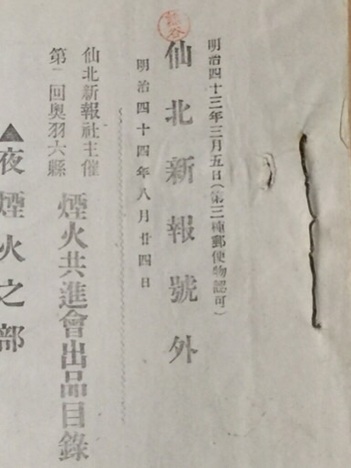 明治四十三年三月五日(第三種郵便物認可)
仙北新報號外
明治四十四年八月廿四日
仙北新報社主催
第一回奧羽六縣
煙火共進會出品目錄
▲夜煙火之部